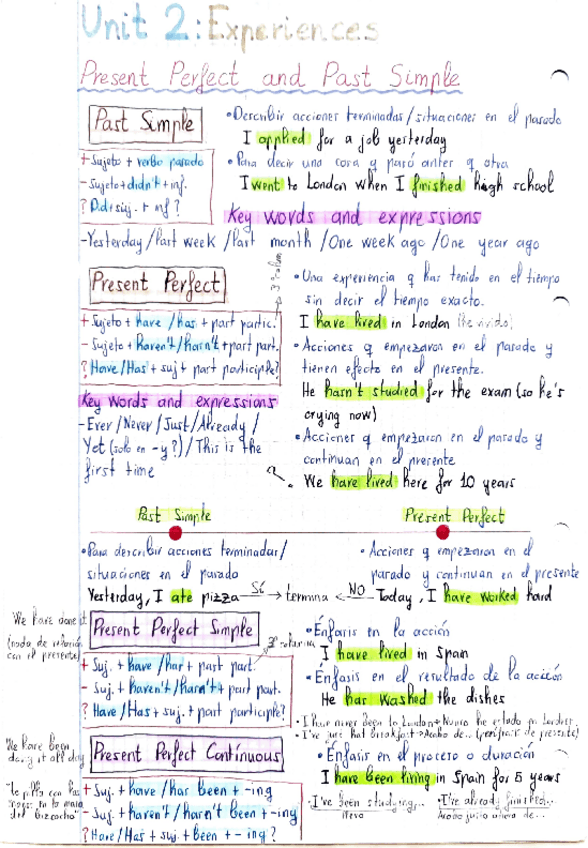 Unit 2: Experiences
Present Perfect and Past Simple
Past Simple
+ Sujeto + verbo pasado
- Sujeto + didn't + inf.
? Did + suj. + inf?
• Describir acciones terminadas/situaciones en el pasado
I applied for a job yesterday
• Para decir una cosa q pasó antes q otra
I went to London when I finished high school
Key words and expressions
- Yesterday / Past week / Past month / One week ago / One year ago
Present Perfect
+ Sujeto + have / has + part partic.
- Sujeto + haven't / hasn't + part part.
? Have / Has + suj + part participle?
Key words and expressions
- Ever / Never / Just / Already /
Yet (solo en - y ?) / This is the
first time
• Una experiencia q has tenido en el tiempo
sin decir el tiempo exacto.
I have lived in London (he vivido)
• Acciones q empezaron en el pasado y
tienen efecto en el presente.
He hasn't studied for the exam (so he's
crying now)
• Acciones q empezaron en el pasado y
continuan en el presente
We have lived here for 10 years
Past Simple
Present Perfect
• Para describir acciones terminadas/
situaciones en el pasado
Yesterday, I ate pizza Sí → termina ← NO Today, I have worked hard
• Acciones q empezaron en el
pasado y continuan en el presente
We have done it
(nada de relación
con el presente)
Present Perfect Simple
+ Suj. + have / has + past part.
- Suj. + haven't / hasn't + past part.
? Have / Has + suj. + past participle?
• Énfasis en la acción
I have lived in Spain
• Énfasis en el resultado de la acción
He has washed the dishes
• I have never been to London → Nunca he estado en Londres.
• I've just had breakfast → Acabo de... (perífrasis de presente)
We have been
doing it all day
Present Perfect Continuous
+ Suj. + have / has been + -ing
- Suj. + haven't / hasn't been + -ing
? Have / Has + suj. + been + -ing?
• Énfasis en el proceso o duración
I have been living in Spain for 5 years
• I've been studying...
llevo
• I've already finished...
Acabo justo ahora de...